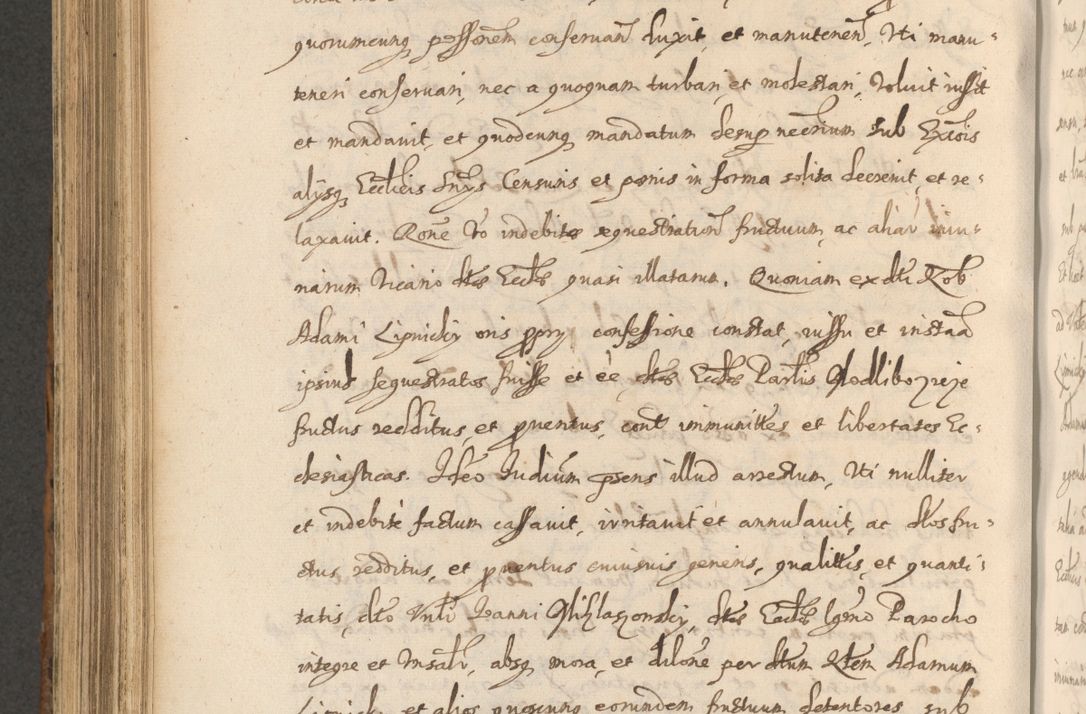 quorumcunq possonem conservan duxit, et manutenen, Uti manu-
teneri conservari, nec a quoquam turbari et molestari, Voluit iussit
et mandavit, et quodcunq mandatum desup necrium sub Excois
alijsq Ecclicis Snijs Censuris et poenis in forma solita decrevit, et re-
laxavit. Rone Vo indebitae sequestrationi fructuum, ac aliar iniu-
riarum Vicario dtae Eccliae quasi illatarum. Quoniam ex dti Nob
Adami Lipnicky oris ppry confessione constat, iussu et instaa
ipsius sequestratos fuisse et ee dtae Eccliae Parlis
fructus redditus, et pventus, cont immunittes et libertates Ec-
clesiasticas. Ideo Iudium psens illud arrestum, Uti nulliter
et indebite factum cassavit, irritavit et annulavit, ac dtos fru-
ctus redditus, et pventus cuiusvis generis, qualittis, et quanti-
tatis, dto Vnli Ioanni dtae Eccliae lgmo Parocho
integre et Insalr, absq mora, et dilone per dtum Adamum
Lipnicky et alios quoscunq eorundem fructuum detentores sub